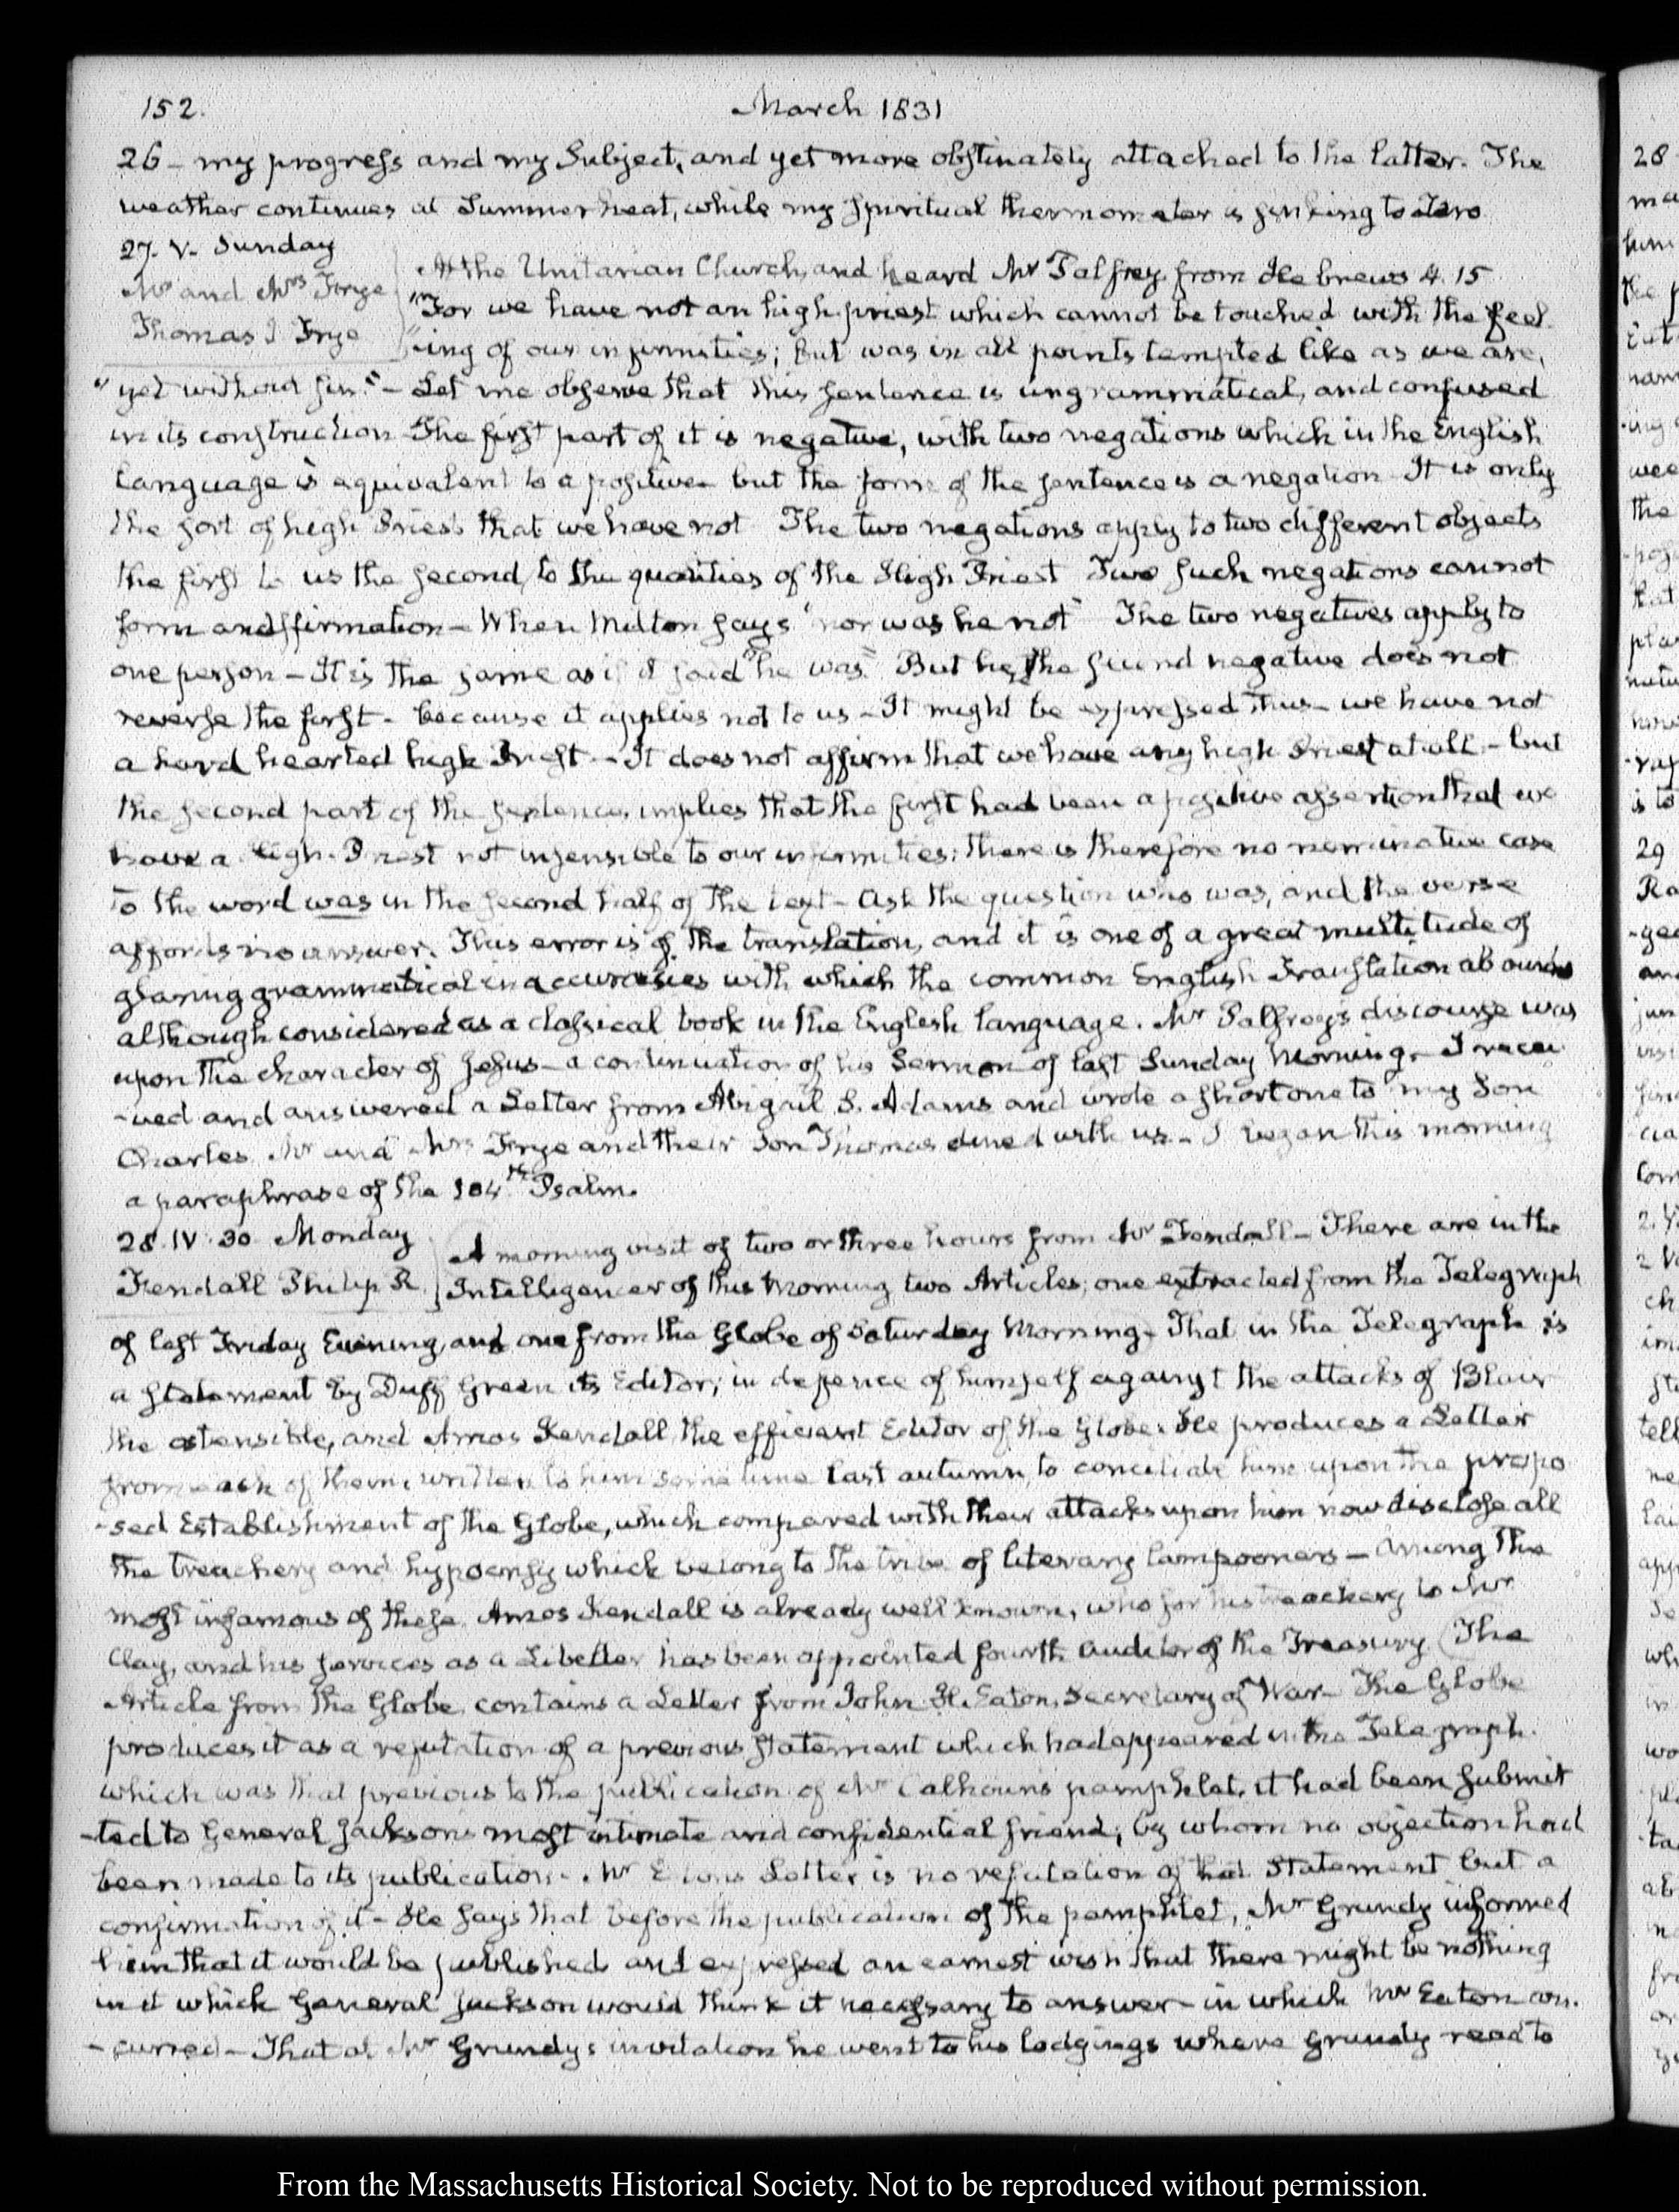 152.
March 1831
26 - my progress and my Subject, and yet more obstinately attached to the latter. The
weather continues at Summer heat, while my spiritual thermometer is sinking to Zero
27. V. Sunday
Mr and Mrs Frye
Thomas J Frye
At the Unitarian Church, and heard Mr Palfrey from Hebrews 4. 15
"For we have not an high priest which cannot be touched with the feel
"ing of our infirmities; but was in all points tempted like as we are,
"yet without sin." - Let me observe that this sentence is ungrammatical, and confused
in its construction - The first part of it is negative, with two negations which in the English
language is equivalent to a positive - but the form of the sentence is a negation - It is only
the sort of high Priest that we have not - The two negations apply to two different objects
the first to us the second, to the qualities of the High Priest - Two such negations cannot
form an affirmation - When Milton says "nor was he not" The two negatives apply to
one person - It is the same as if it said "he was." But here the second negative does not
reverse the first - because it applies not to us - It might be expressed thus - we have not
a hard hearted high Priest - It does not affirm that we have any high Priest at all - but
the second part of the sentence, implies that the first had been a positive assertion that we
have a high-Priest not insensible to our infirmities: there is therefore no nominative case
to the word was in the second half of the text - Ask the question who was, and the verse
affords no answer. This error is of the translation, and it is one of a great multitude of
glaring grammatical inaccuracies with which the common English Translation abounds
although considered as a classical book in the English language. Mr Palfrey's discourse was
upon the character of Jesus - a continuation of his Sermon of last Sunday Morning. I recei
-ved and answered a Letter from Abigail S. Adams and wrote a short one to my Son
Charles. Mr and Mrs Frye and their Son Thomas dined with us - I began this morning
a paraphrase of the 104th Psalm.
28. IV. 30 Monday
Fendall Philip R.
A morning visit of two or three hours from Mr Fendall - There are in the
Intelligencer of this Morning two Articles; one extracted from the Telegraph
of last Friday Evening, and one from the Globe of Saturday Morning - That in the Telegraph is
a statement by Duff Green its Editor; in defence of himself against the attacks of Blair
the ostensible, and Amos Kendall the efficient Editor of the Globe. He produces a Letter
from each of them, written to him some time last autumn, to conciliate him upon the propo
-sed Establishment of the Globe, which compared with their attacks upon him now disclose all
the treachery and hypocrisy which belong to the tribe of literary lampooners - Among the
most infamous of these Amos Kendall is already well known, who for his treachery to Mr
Clay, and his services as a Libeller has been appointed fourth Auditor of the Treasury (The
Article from the Globe contains a Letter from John H. Eaton, Secretary of War - The Globe
produces it as a refutation of a previous statement which had appeared in the Telegraph.
which was that previous to the publication of Mr Calhoun's pamphlet, it had been submit
-ted to General Jackson's most intimate and confidential friend, by whom no objection had
been made to its publication - Mr Eatons Letter is no refutation of that Statement but a
confirmation of it - He says that before the publication of the pamphlet, Mr Grundy informed
him that it would be published and expressed an earnest wish that there might be nothing
in it which General Jackson would think it necessary to answer - in which Mr Eaton con.
-curred - That at Mr Grundy's invitation he went to his lodgings where Grundy read to
From the Massachusetts Historical Society. Not to be reproduced without permission.